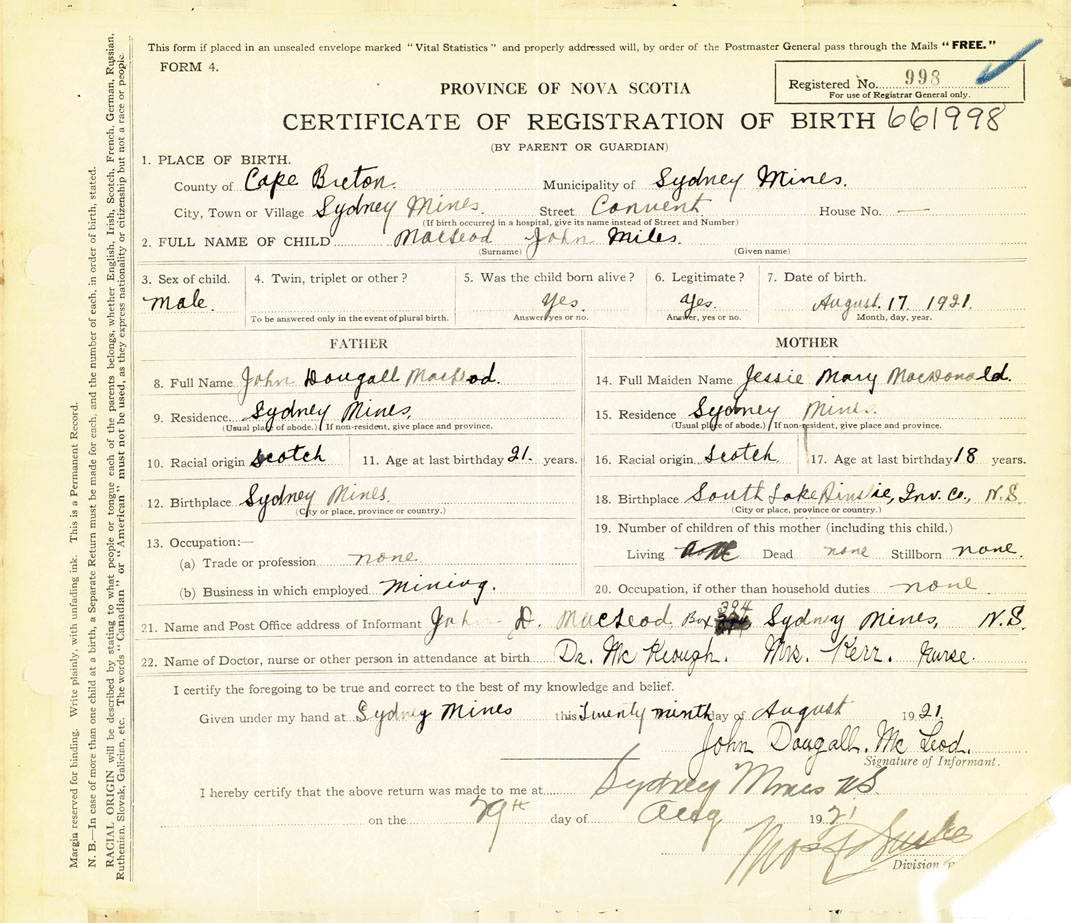 This form if placed in an unsealed envelope marked "Vital Statistics" and properly addressed will, by order of the Postmaster General pass through the Mails "FREE."
FORM 4.
Registered No. 998
For use of Registrar General only.
PROVINCE OF NOVA SCOTIA
CERTIFICATE OF REGISTRATION OF BIRTH 661998
(BY PARENT OR GUARDIAN)
1. PLACE OF BIRTH.
County of Cape Breton. Municipality of Sydney Mines.
City, Town or Village Sydney Mines. Street Convent House No. —
(If birth occurred in a hospital, give its name instead of Street and Number)
2. FULL NAME OF CHILD MacLeod John Miles.
(Surname) (Given name)
3. Sex of child. 4. Twin, triplet or other? 5. Was the child born alive? 6. Legitimate? 7. Date of birth.
Male. Yes. Yes. August. 17. 1921.
To be answered only in the event of plural birth. Answer yes or no. Answer, yes or no. Month, day, year.
FATHER MOTHER
8. Full Name John Dougall MacLeod. 14. Full Maiden Name Jessie Mary MacDonald.
9. Residence Sydney Mines. 15. Residence Sydney Mines.
(Usual place of abode.) If non-resident, give place and province. (Usual place of abode.) If non-resident, give place and province.
10. Racial origin Scotch 11. Age at last birthday 21. years. 16. Racial origin Scotch 17. Age at last birthday 18 years.
12. Birthplace Sydney Mines. 18. Birthplace South Lake Ainslie, Inv. Co., N.S
(City or place, province or country.) (City or place, province or country.)
19. Number of children of this mother (including this child.)
13. Occupation:—
Living Dead none Stillborn none.
(a) Trade or profession none.
(b) Business in which employed Mining. 20. Occupation, if other than household duties none
21. Name and Post Office address of Informant John D. MacLeod, Box 394 Sydney Mines, N.S.
22. Name of Doctor, nurse or other person in attendance at birth Dr. McKeough. Mrs. Kerr. Nurse.
I certify the foregoing to be true and correct to the best of my knowledge and belief.
Given under my hand at Sydney Mines this Twenty ninth day of August 1921.
John Dougall. McLeod.
Signature of Informant.
I hereby certify that the above return was made to me at Sydney Mines NS
on the 29th day of Aug 1921
Division
Margin reserved for binding. Write plainly, with unfading ink. This is a Permanent Record.
N. B.—In case of more than one child at a birth, a Separate Return must be made for each, and the number of each, in order of birth, stated.
RACIAL ORIGIN will be described by stating to what people or tongue each of the parents belongs, whether English, Irish, Scotch, French, German, Russian,
Ruthenian, Slovak, Galician, etc. The words "Canadian" or "American" must not be used, as they express nationality or citizenship but not a race or people